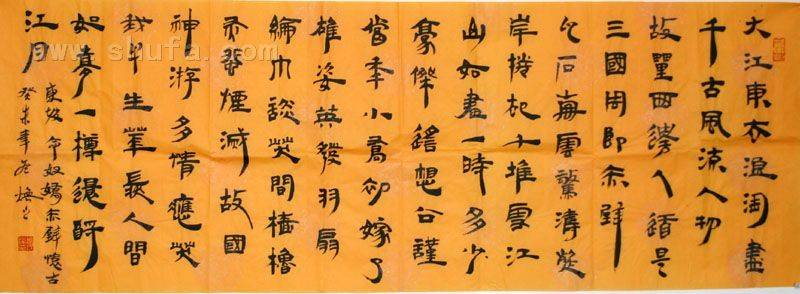 大江東去浪淘盡
千古風流人物
故壘西邊人道是
三國周郎赤壁
石崩雲驚濤裂
岸捲起千堆雪江
山如畫一時多少
豪傑遙想公謹
當年小喬初嫁了
雄姿英發羽扇
綸巾談笑間檣櫓
灰飛煙滅故國
神游多情應笑
我早生華髮人間
如夢一樽還酹
江月
東坡念奴嬌赤壁懷古
癸未年
www.shufa.com